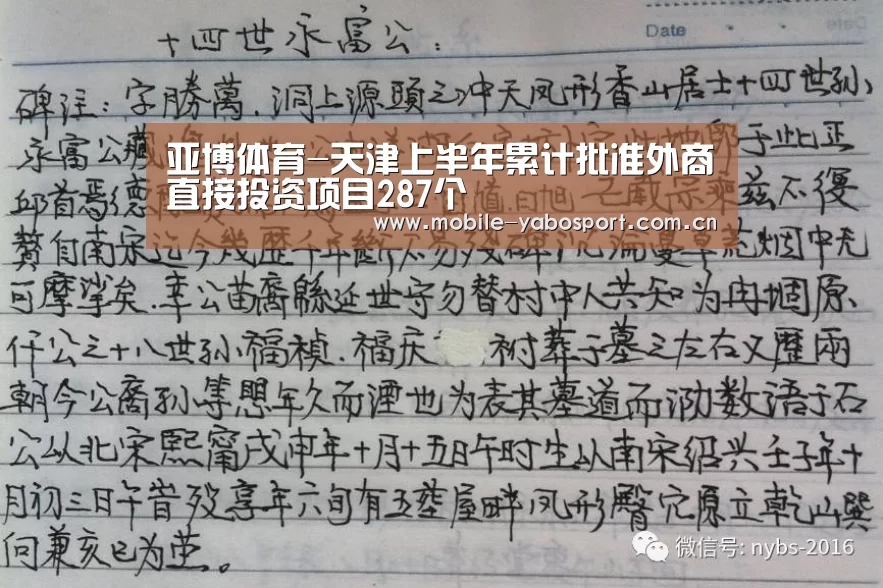 Date
十四世永富公：
碑注：字勝萬．洞上源頭之冲天凤形香山居士十四世孙、
永富公藏 于此正
亚博体育-天津上半年累计批准外商
直接投资项目287个
www.mobile-yabosport.com.cn
邱首焉德 兹不復
贅自南宋迄今幾歷千年 烟中无
可摩挲矣．幸公苗裔緜延世守勿替村中人共知为冉堌原、
仟公之十八世孙、福禎．福庆 祔葬于墓之左右义歷兩
朝今公裔孙等思年久而湮也为表其墓道而泐数语于石
公以北宋熙甯戊申年十月十五日午时生以南宋绍兴壬子年十
月初三日午旹殁享年六旬有五塟屋畔凤形臀穴原立乾山巽
向兼亥巳为茔。
微信号: nybs-2016